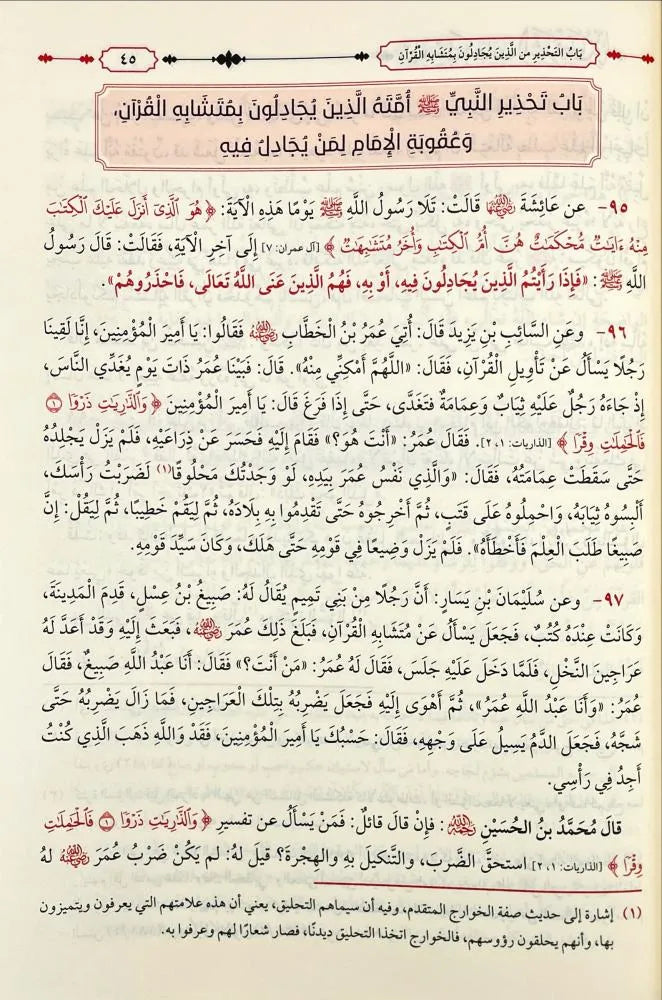 بَابُ التَّحْذِيرِ مِن الَّذِينَ يُجَادِلُونَ بِمُتَشَابِهِ الْقُرْآنِ
٤٥
بَابُ تَحْذِيرِ النَّبِيِّ ﷺ أُمَّتَهُ الَّذِينَ يُجَادِلُونَ بِمُتَشَابِهِ الْقُرْآنِ،
وَعُقُوبَةِ الْإِمَامِ لِمَنْ يُجَادِلُ فِيهِ
٩٥- عن عَائِشَةَ رضي الله عنها قَالَتْ: تَلَا رَسُولُ اللَّهِ ﷺ يَوْمًا هَذِهِ الْآيَةَ: ﴿هُوَ ٱلَّذِىٓ أَنزَلَ عَلَيْكَ ٱلْكِتَٰبَ
مِنْهُ ءَايَٰتٌ مُّحْكَمَٰتٌ هُنَّ أُمُّ ٱلْكِتَٰبِ وَأُخَرُ مُتَشَٰبِهَٰتٌ﴾ [آل عمران: ٧] إِلَى آخِرِ الْآيَةِ، فَقَالَتْ: قَالَ رَسُولُ
اللَّهِ ﷺ: «فَإِذَا رَأَيْتُمُ الَّذِينَ يُجَادِلُونَ فِيهِ، أَوْ بِهِ، فَهُمُ الَّذِينَ عَنَى اللَّهُ تَعَالَى، فَاحْذَرُوهُمْ».
٩٦- وعَنِ السَّائِبِ بْنِ يَزِيدَ قَالَ: أُتِيَ عُمَرُ بْنُ الْخَطَّابِ رضي الله عنه فَقَالُوا: يَا أَمِيرَ الْمُؤْمِنِينَ، إِنَّا لَقِينَا
رَجُلًا يَسْأَلُ عَنْ تَأْوِيلِ الْقُرْآنِ، فَقَالَ: «اللَّهُمَّ أَمْكِنِّي مِنْهُ». قَالَ: فَبَيْنَا عُمَرُ ذَاتَ يَوْمٍ يُغَدِّي النَّاسَ،
إِذْ جَاءَهُ رَجُلٌ عَلَيْهِ ثِيَابٌ وَعِمَامَةٌ فَتَغَدَّى، حَتَّى إِذَا فَرَغَ قَالَ: يَا أَمِيرَ الْمُؤْمِنِينَ ﴿وَٱلذَّٰرِيَٰتِ ذَرْوًا ١
فَٱلْحَٰمِلَٰتِ وِقْرًا﴾ [الذاريات: ١، ٢]. فَقَالَ عُمَرُ: «أَنْتَ هُوَ؟» فَقَامَ إِلَيْهِ فَحَسَرَ عَنْ ذِرَاعَيْهِ، فَلَمْ يَزَلْ يَجْلِدُهُ
حَتَّى سَقَطَتْ عِمَامَتُهُ، فَقَالَ: «وَالَّذِي نَفْسُ عُمَرَ بِيَدِهِ، لَوْ وَجَدْتُكَ مَحْلُوقًا(١) لَضَرَبْتُ رَأْسَكَ،
أَلْبِسُوهُ ثِيَابَهُ، وَاحْمِلُوهُ عَلَى قَتَبٍ، ثُمَّ أَخْرِجُوهُ حَتَّى تَقْدَمُوا بِهِ بِلَادَهُ، ثُمَّ لِيَقُمْ خَطِيبًا، ثُمَّ لِيَقُلْ: إِنَّ
صَبِيغًا طَلَبَ الْعِلْمَ فَأَخْطَأَهُ». فَلَمْ يَزَلْ وَضِيعًا فِي قَوْمِهِ حَتَّى هَلَكَ، وَكَانَ سَيِّدَ قَوْمِهِ.
٩٧- وعن سُلَيْمَانَ بْنِ يَسَارٍ: أَنَّ رَجُلًا مِنْ بَنِي تَمِيمٍ يُقَالُ لَهُ: صَبِيغُ بْنُ عِسْلٍ، قَدِمَ الْمَدِينَةَ،
وَكَانَتْ عِنْدَهُ كُتُبٌ، فَجَعَلَ يَسْأَلُ عَنْ مُتَشَابِهِ الْقُرْآنِ، فَبَلَغَ ذَلِكَ عُمَرَ رضي الله عنه، فَبَعَثَ إِلَيْهِ وَقَدْ أَعَدَّ لَهُ
عَرَاجِينَ النَّخْلِ، فَلَمَّا دَخَلَ عَلَيْهِ جَلَسَ، فَقَالَ لَهُ عُمَرُ: «مَنْ أَنْتَ؟» فَقَالَ: أَنَا عَبْدُ اللَّهِ صَبِيغٌ، فَقَالَ
عُمَرُ: «وَأَنَا عَبْدُ اللَّهِ عُمَرُ»، ثُمَّ أَهْوَى إِلَيْهِ فَجَعَلَ يَضْرِبُهُ بِتِلْكَ الْعَرَاجِينِ، فَمَا زَالَ يَضْرِبُهُ حَتَّى
شَجَّهُ، فَجَعَلَ الدَّمُ يَسِيلُ عَلَى وَجْهِهِ، فَقَالَ: حَسْبُكَ يَا أَمِيرَ الْمُؤْمِنِينَ، فَقَدْ وَاللَّهِ ذَهَبَ الَّذِي كُنْتُ
أَجِدُ فِي رَأْسِي.
قَالَ مُحَمَّدُ بنُ الحُسَيْنِ رحمه الله: فإِنْ قال قائلٌ: فمَنْ يَسألُ عن تفسيرِ ﴿وَٱلذَّٰرِيَٰتِ ذَرْوًا ١ فَٱلْحَٰمِلَٰتِ
وِقْرًا﴾ [الذاريات: ١، ٢] استحقَّ الضَّربَ، والتَّنكيلَ بهِ والهِجْرةَ؟ قيلَ لهُ: لم يَكُنْ ضَرْبُ عُمَرَ رضي الله عنه لهُ
(١) إشارة إلى حديث صفة الخوارج المتقدم، وفيه أن سيماهم التحليق، يعني أن هذه علامتهم التي يعرفون ويتميزون
بها، وأنهم يحلقون رؤوسهم، فالخوارج اتخذا التحليق ديدنًا، فصار شعارًا لهم وعرفوا به.